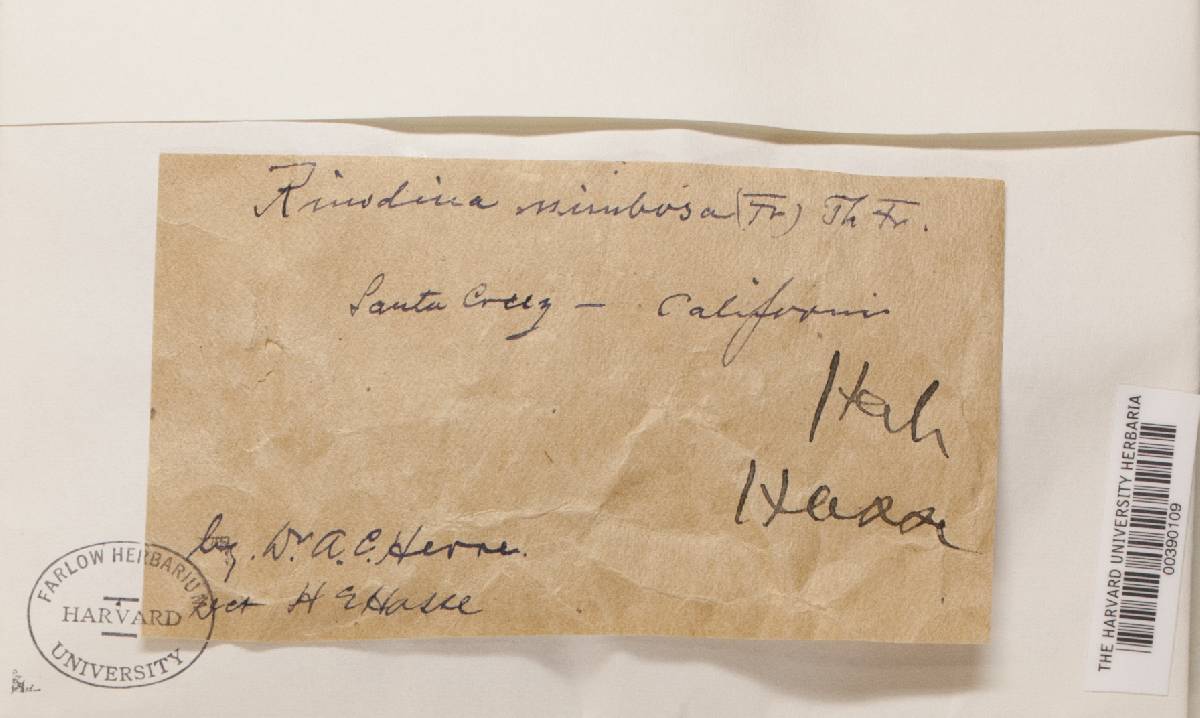 Rinodina nimbosa (Fr) Th Fr.
Santa Cruz — California
Herb
Hasse
by. Dr A. C. Herre.
H E Hasse
FARLOW HERBARIUM
HARVARD
UNIVERSITY
THE HARVARD UNIVERSITY HERBARIA
00390109